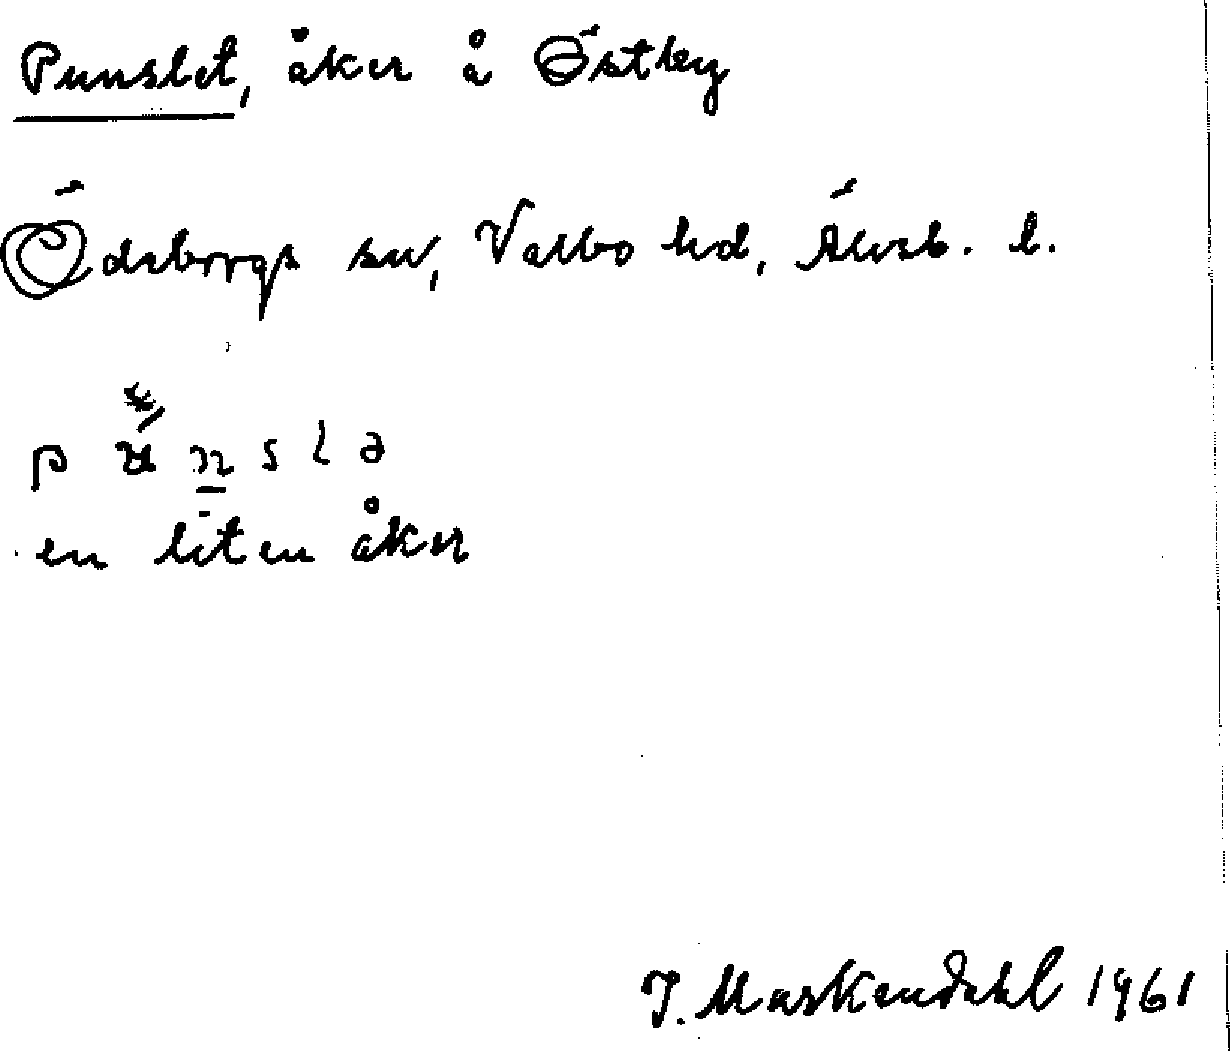 Punslet, åker å Östby
Ödsborgs sn, Valbo hd, Älvsb. l.
p ʉ́ n s l ə
en liten åker
J. Maskendahl 1961